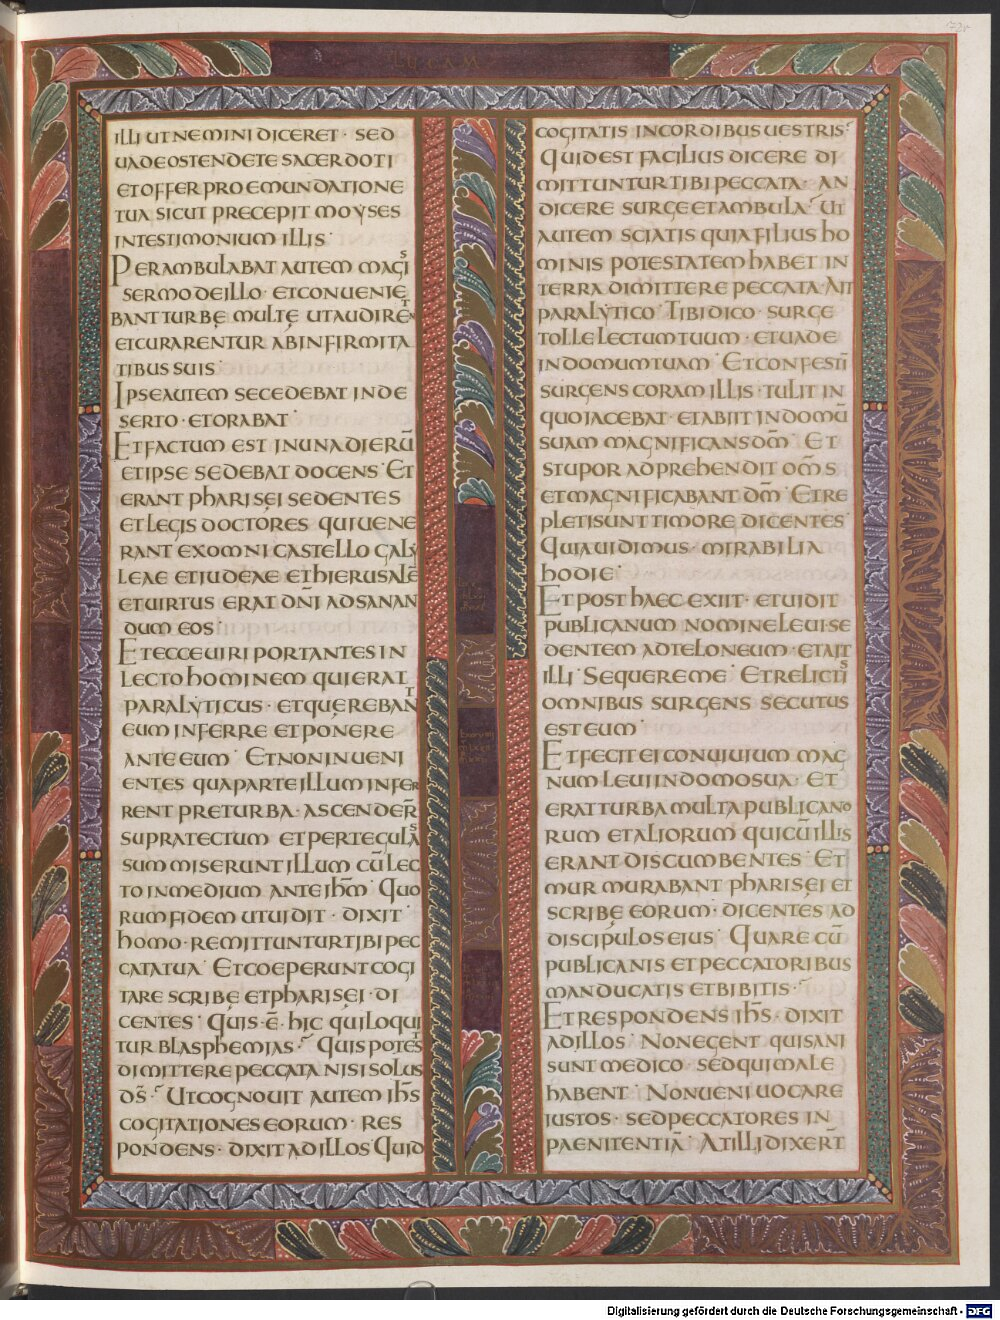 LUCAM
ILLI UT NEMINI DICERET · SED
UADE OSTENDE TE SACERDOTI
ET OFFER PRO EMUNDATIONE
TUA SICUT PRECEPIT MOYSES
IN TESTIMONIUM ILLIS ·
PERAMBULABAT AUTEM MAGIS
SERMO DE ILLO · ET CONUENIE
BANT TURBĘ MULTĘ UT AUDIRENT
ET CURARENTUR AB INFIRMITA
TIBUS SUIS ·
IPSE AUTEM SECEDEBAT IN DE
SERTO · ET ORABAT ·
ET FACTUM EST IN UNA DIERŪ
ET IPSE SEDEBAT DOCENS · ET
ERANT PHARISĘI SEDENTES
ET LEGIS DOCTORES QUI UENE
RANT EX OMNI CASTELLO GALY
LEAE ET IUDEAE ET HIERUSALĒ
ET UIRTUS ERAT DN̄I AD SANAN
DUM EOS ·
ET ECCE UIRI PORTANTES IN
LECTO HOMINEM QUI ERAT
PARALYTICUS · ET QUEREBANT
EUM INFERRE ET PONERE
ANTE EUM · ET NON INUENI
ENTES QUA PARTE ILLUM INFER
RENT PRE TURBA · ASCENDER̄
SUPRA TECTUM ET PER TEGULAS
SUMMISERUNT ILLUM CŪ LEC
TO IN MEDIUM ANTE IHM̄ · QUO
RUM FIDEM UT UIDIT · DIXIT ·
HOMO · REMITTUNTUR TIBI PEC
CATA TUA · ET COEPERUNT COGI
TARE SCRIBE ET PHARISĘI · DI
CENTES · QUIS · Ē · HIC QUI LOQUI
TUR BLASPHEMIAS · QUIS POTEST
DIMITTERE PECCATA NISI SOLUS
DS̄ · UT COGNOUIT AUTEM IHS̄
COGITATIONES EORUM · RES
PONDENS · DIXIT AD ILLOS QUID
COGITATIS IN CORDIBUS UESTRIS ·
QUID EST FACILIUS DICERE DI
MITTUNTUR TIBI PECCATA · AN
DICERE SURGE ET AMBULA · UT
AUTEM SCIATIS QUIA FILIUS HO
MINIS POTESTATEM HABET IN
TERRA DIMITTERE PECCATA · AIT
PARALYTICO · TIBI DICO · SURGE
TOLLE LECTUM TUUM · ET UADE
IN DOMUM TUAM · ET CONFESTĪ
SURGENS CORAM ILLIS · TULIT IN
QUO IACEBAT · ET ABIIT IN DOMŪ
SUAM MAGNIFICANS DM̄ · ET
STUPOR ADPREHENDIT OM̄S
ET MAGNIFICABANT DM̄ · ET RE
PLETI SUNT TIMORE DICENTES ·
QUIA UIDIMUS · MIRABILIA
HODIE ·
ET POST HAEC EXIIT · ET UIDIT
PUBLICANUM NOMINE LEUI · SE
DENTEM AD TELONEUM · ET AIT
ILLI · SEQUERE ME · ET RELICTIS
OMNIBUS SURGENS SECUTUS
EST EUM ·
ET FECIT EI CONUIUIUM MAG
NUM LEUI IN DOMO SUA · ET
ERAT TURBA MULTA PUBLICANO
RUM ET ALIORUM QUI CŪ ILLIS
ERANT DISCUMBENTES · ET
MURMURABANT PHARISĘI ET
SCRIBĘ EORUM · DICENTES AD
DISCIPULOS EIUS · QUARE CŪ
PUBLICANIS ET PECCATORIBUS
MANDUCATIS ET BIBITIS ·
ET RESPONDENS IHS̄ · DIXIT
AD ILLOS · NON EGENT QUI SANI
SUNT MEDICO · SED QUI MALE
HABENT · NON UENI UOCARE
IUSTOS · SED PECCATORES IN
PAENITENTIĀ · AT ILLI DIXER̄T
Digitalisierung gefördert durch die Deutsche Forschungsgemeinschaft - DFG